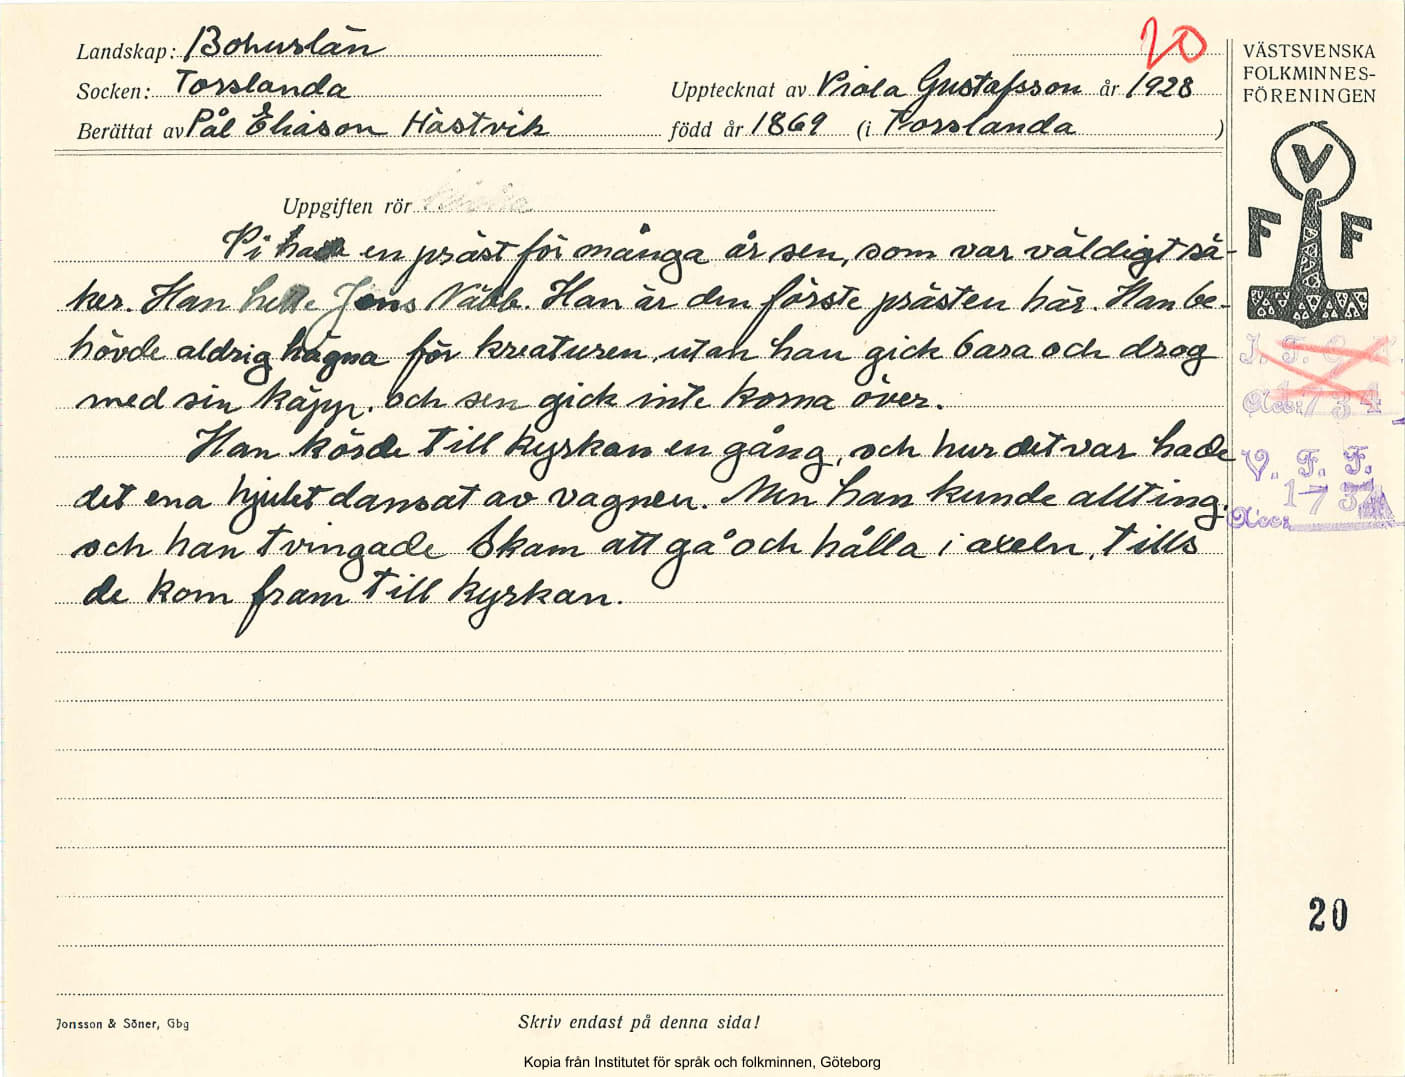 20
Landskap: Bohuslän
Socken: Torslanda
Upptecknat av Viola Gustafsson år 1928
Berättat av Pål Eliason Hästvik
född år 1869 (i Torslanda )
VÄSTSVENSKA
FOLKMINNES-
FÖRENINGEN
V
F F
Uppgiften rör
Vi hade en präst för många år sen, som var väldigt sä-
ker. Han hette Jens Näbb. Han är den förste prästen här. Han be-
hövde aldrig hägna för kreaturen, utan han gick bara och drog
med sin käpp, och sen gick inte korna över.
Han körde till kyrkan en gång, och hur det var hade
det ena hjulet dansat av vagnen. Men han kunde allting,
och han tvingade Skam att gå och hålla i axeln, tills
de kom fram till kyrkan.
Acc: 1734
V. F. F.
Acc: 173
20
Jonsson & Söner, Gbg
Skriv endast på denna sida!
Kopia från Institutet för språk och folkminnen, Göteborg